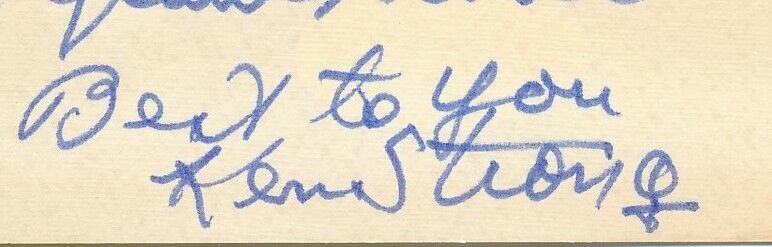 Best to you
Ken Strong